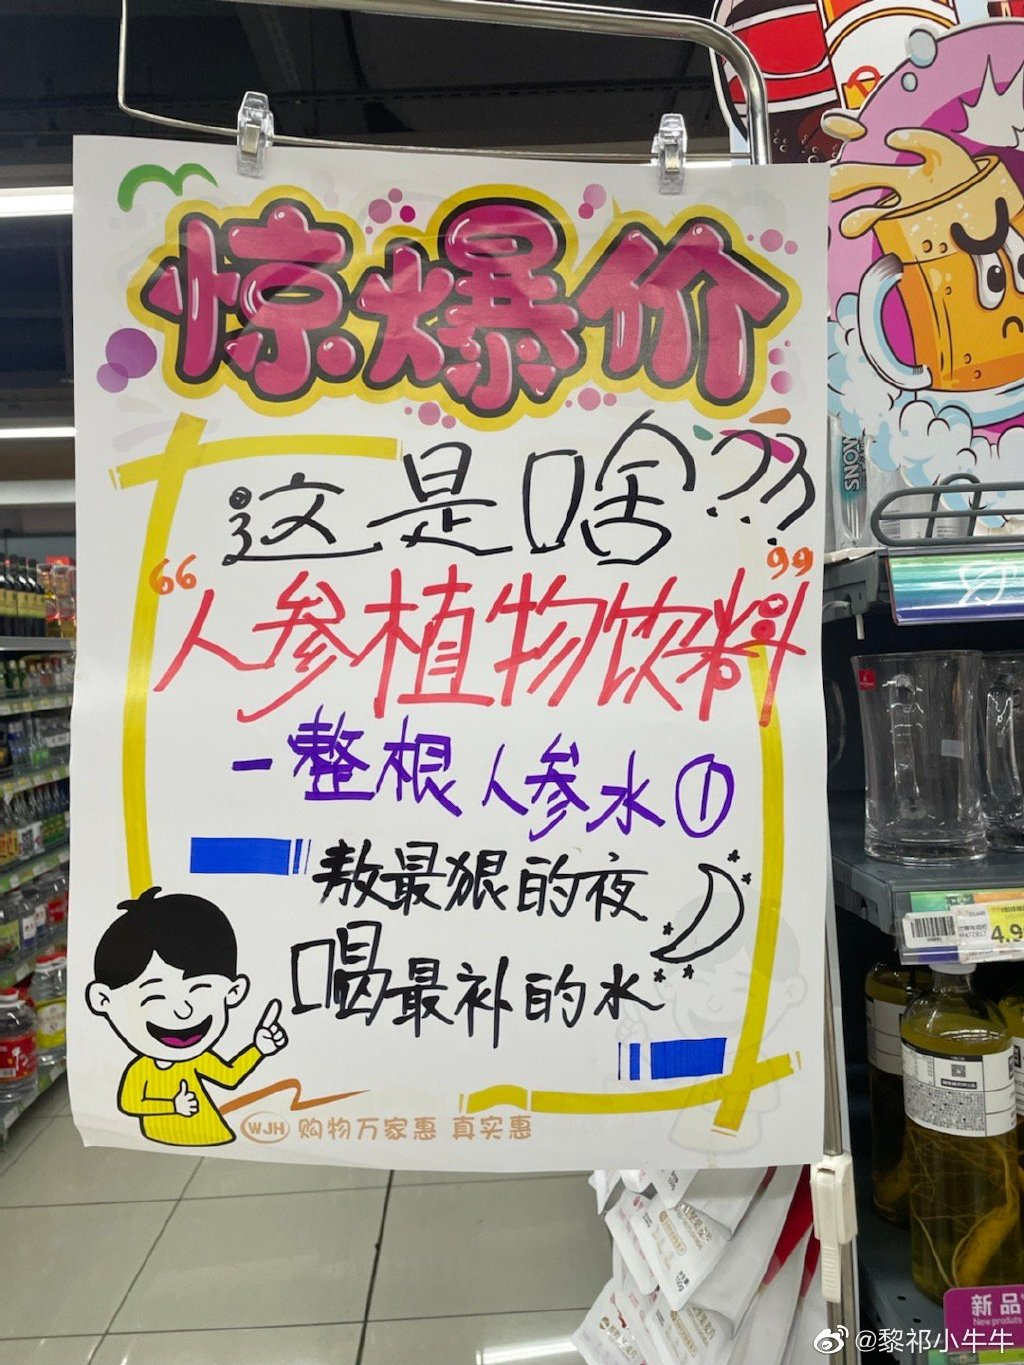 惊爆价
这是啥???
“人参植物饮料”
一整根人参水①
熬最狠的夜
喝最补的水
WJH 购物万家惠 真实惠
SNOW
4.9
新品
New produts
@黎祁小牛牛